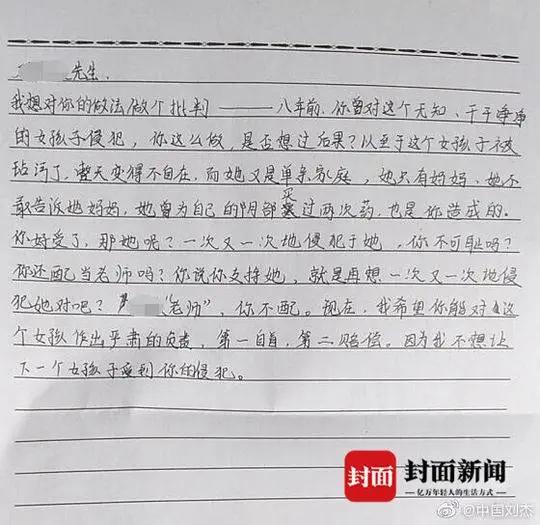 先生.
我想对你的做法做个批判——八年前,你曾对这个无知、干干净净
的女孩子侵犯,你这么做,是否想过后果?以至于这个女孩子被
玷污了,整天变得不自在,而她又是单亲家庭,她只有妈妈,她不
敢告诉她妈妈,她曾为自己的阴部买过两次药,也是你造成的。
你好受了,那她呢?一次又一次地侵犯于她,你不可耻吗?
你还配当老师吗?你说你支持她,就是再想一次又一次地侵
犯她对吧? “老师”,你不配。现在,我希望你能对这
个女孩作出严肃的负责,第一自首,第二赔偿。因为我不想让
下一个女孩子受到你的侵犯。
封面 封面新闻
亿万年轻人的生活方式
@中国刘杰